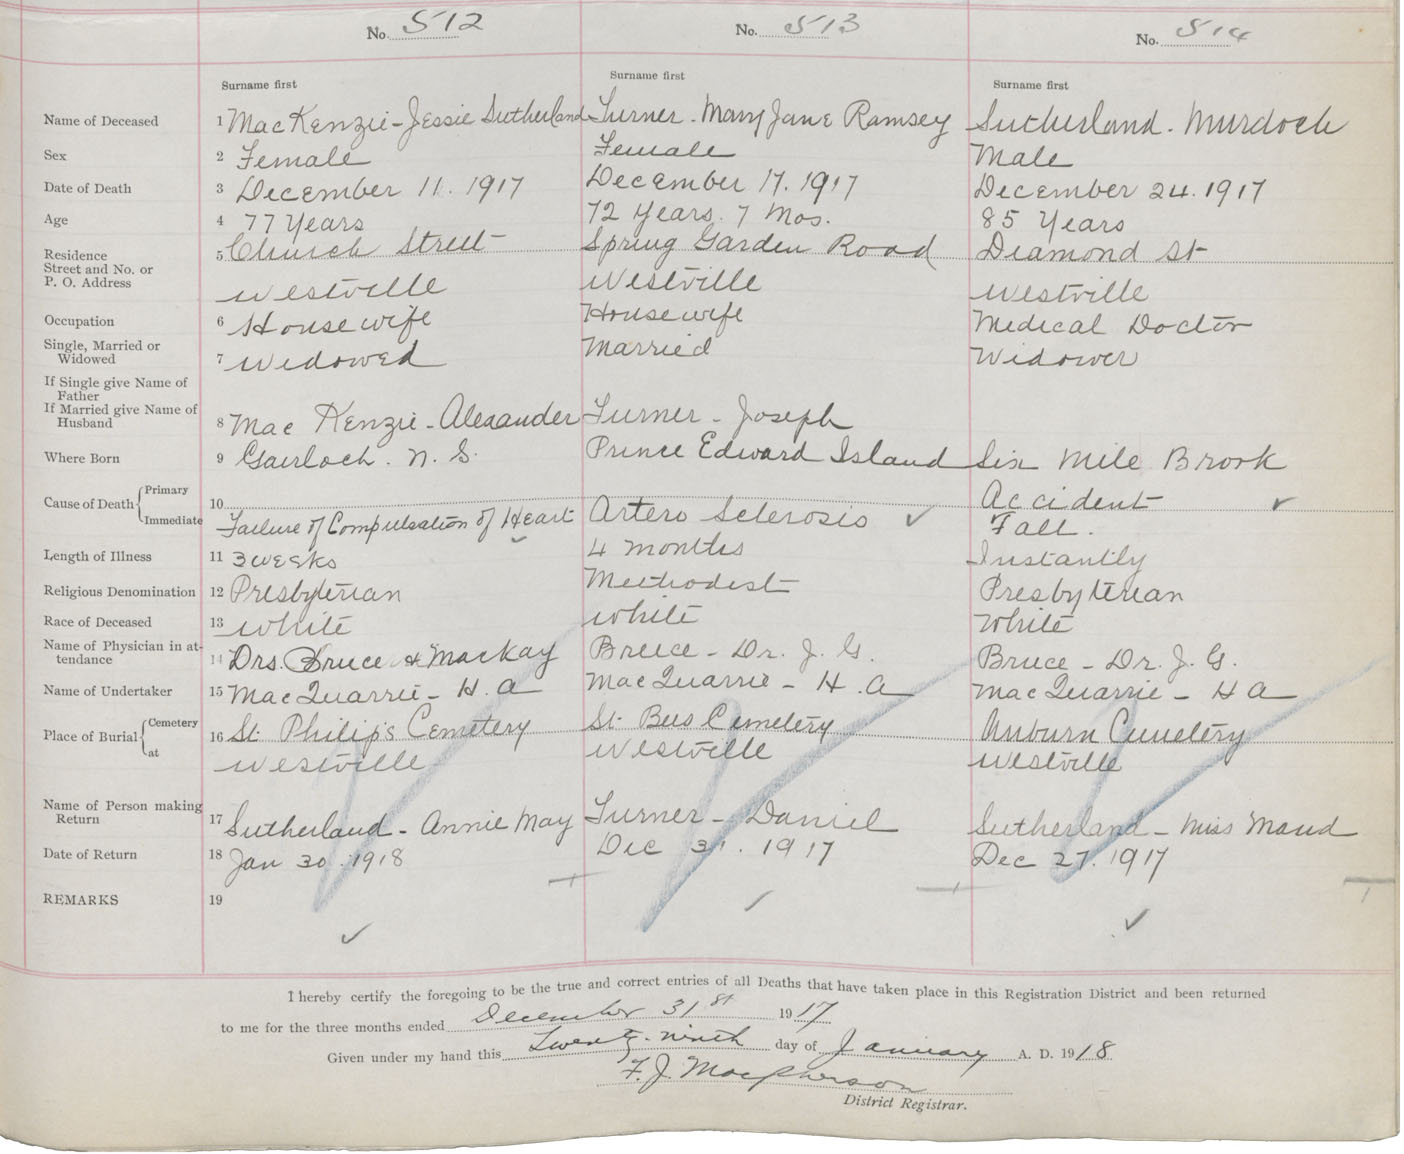 No. 512 No. 513 No. 514
Surname first Surname first Surname first
Name of Deceased 1 MacKenzie - Jessie Sutherland Turner - Mary Jane Ramsey Sutherland - Murdoch
Sex 2 Female Female Male
Date of Death 3 December 11. 1917 December 17. 1917 December 24. 1917
Age 4 77 Years 72 Years. 7 Mos. 85 Years
Residence 5 Church Street Spring Garden Road Diamond St
Street and No. or
P. O. Address Westville Westville Westville
Occupation 6 Housewife Housewife Medical Doctor
Single, Married or
Widowed 7 Widowed Married Widower
If Single give Name of
Father
If Married give Name of
Husband 8 Mac Kenzie - Alexander Turner - Joseph
Where Born 9 Gairloch. N. S. Prince Edward Island Six Mile Brook
Cause of Death Primary 10 Accident
Immediate Failure of Compulsation of Heart Artero Sclerosis Fall.
Length of Illness 11 3 weeks 4 months Instantly
Religious Denomination 12 Presbyterian Methodist Presbyterian
Race of Deceased 13 White White White
Name of Physician in at-
tendance 14 Drs. Bruce & MacKay Bruce - Dr. J. G. Bruce - Dr. J. G.
Name of Undertaker 15 MacQuarrie - H. A MacQuarrie - H. A MacQuarrie - H A
Place of Burial Cemetery 16 St. Philip's Cemetery St. Bees Cemetery Auburn Cemetery
at Westville Westville Westville
Name of Person making
Return 17 Sutherland - Annie May Turner - Daniel Sutherland - Miss Maud
Date of Return 18 Jan 30. 1918 Dec 31. 1917 Dec 27. 1917
REMARKS 19
I hereby certify the foregoing to be the true and correct entries of all Deaths that have taken place in this Registration District and been returned
to me for the three months ended December 31st 1917
Given under my hand this Twenty-ninth day of January A. D. 1918
F. J. MacPherson
District Registrar.